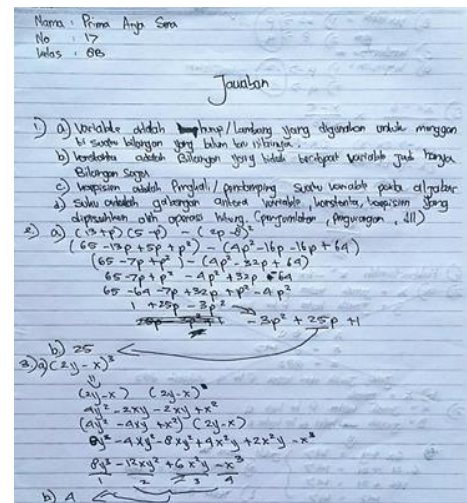 Nama : Prima Anja Sera
No : 17
Kelas : 8B
Jawaban
1.) a) Variable adalah hurup/Lambang yang digunakan untuk menggan
ti suatu bilangan yang belum tau nilainya.
b) konstanta adalah Bilangan yang tidak terdapat variable jadi hanya
Bilangan Saja
c) koepisien adalah Pengkali/pendamping Suatu variable pada aljabar
d) Suku adalah gabungan antara variable, konstanta, koepisien yang
dipisahkan oleh operasi hitung. (penjumlahan, pengurangan, dll)
2) a) (13+p) (5-p) - (2p-8)²
(65-13p+5p+p²) - (4p²-16p-16p+64)
(65-7p+p²) - (4p²-32p+64)
65-7p+p²-4p²+32p-64
65-64-7p+32p+p²-4p²
1+25p-3p²
-3p²+25p+1
b) 25
3) a) (2y-x)³
(2y-x) (2y-x)
4y²-2xy-2xy+x²
(4y²-4xy+x²) (2y-x)
8y³-4xy²-8xy²+4x²y+2x²y-x³
8y³-12xy²+6x²y-x³
1 2 3 4
b) 4